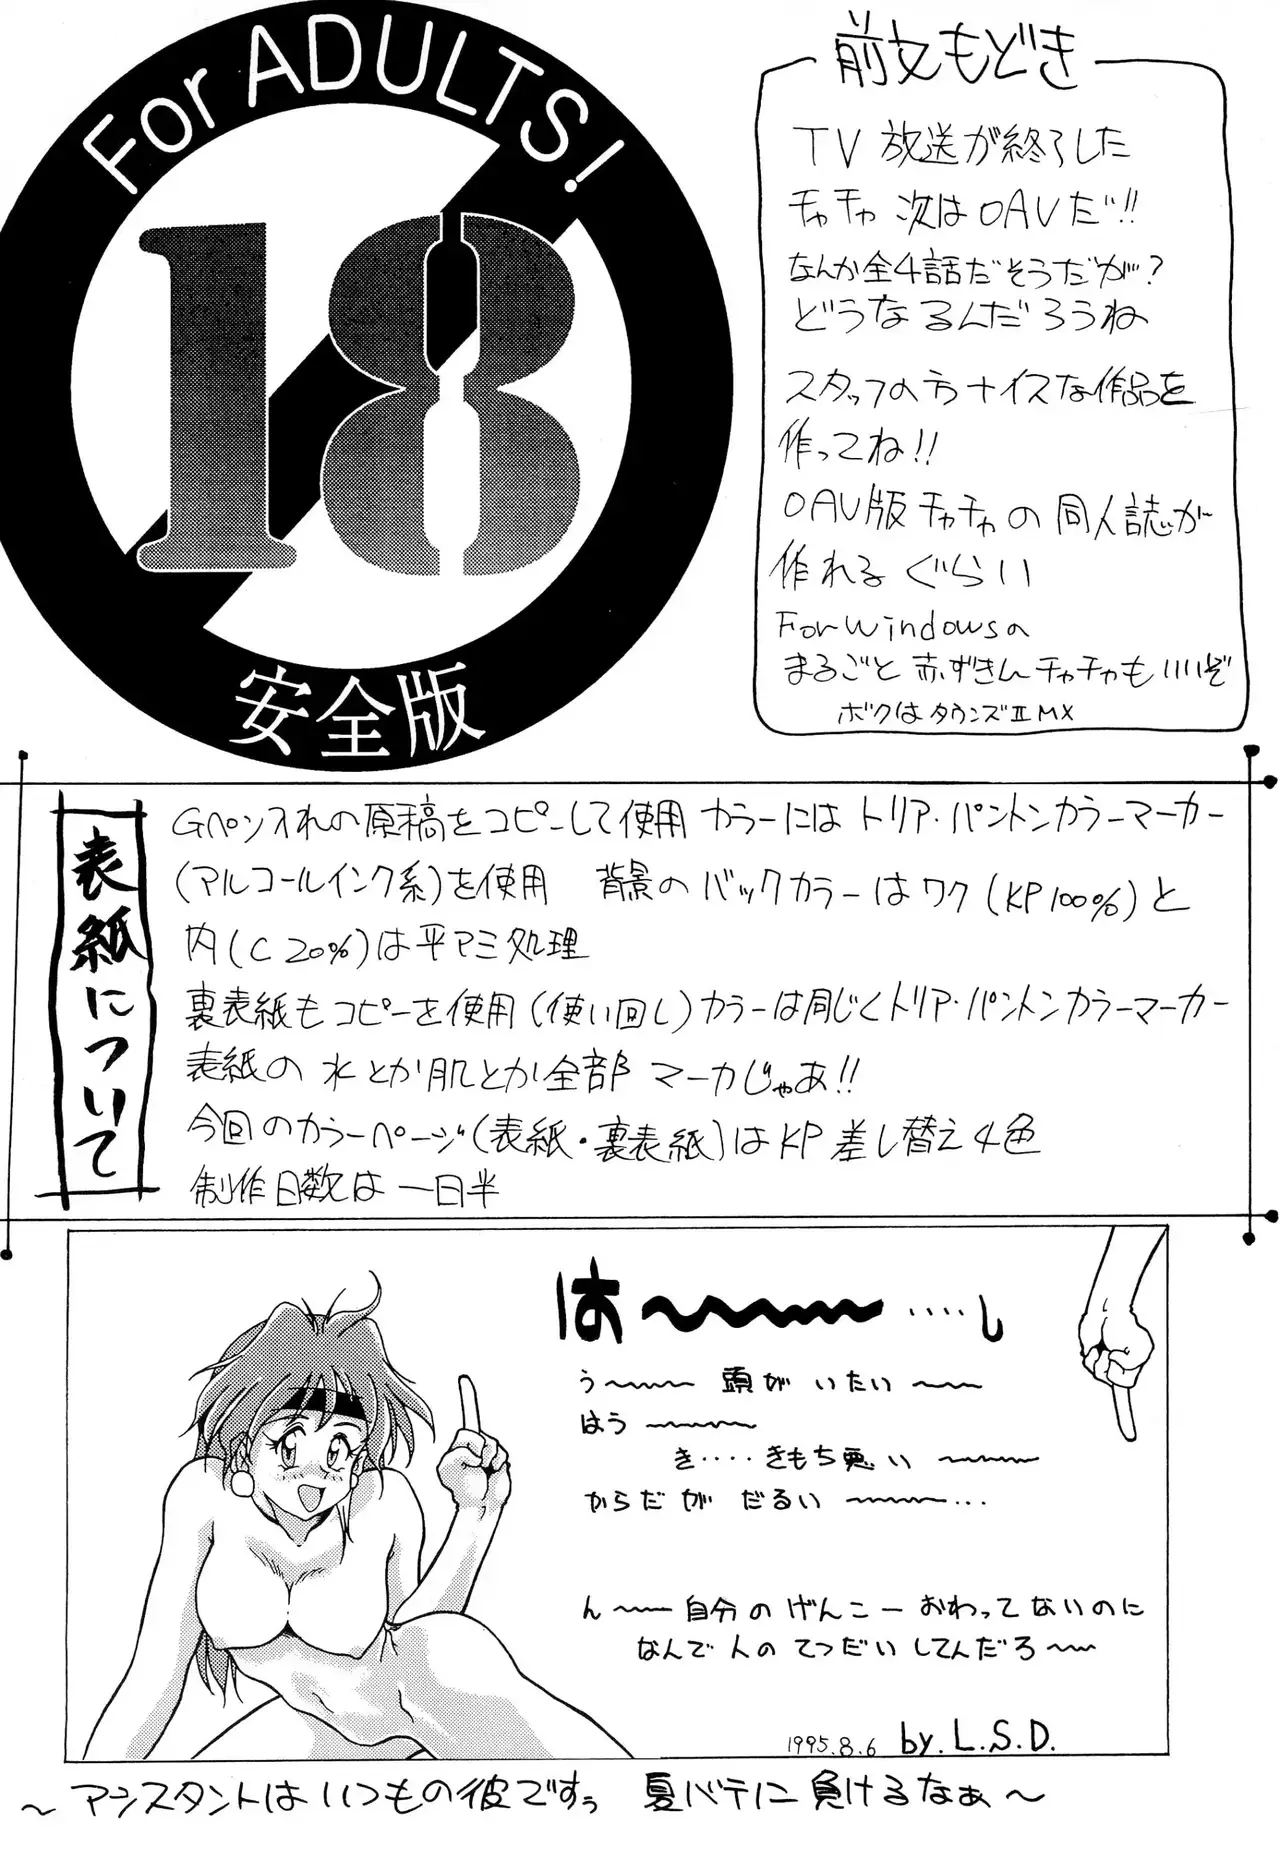 For ADULTS!
18
安全版
前文もどき
TV 放送が終了した
チャチャ 次は OAVだ!!
なんか全4話だそうだが?
どうなるんだろうね
スタッフの方ナイスな作品を
作ってね!!
OAV版チャチャの同人誌が
作れるぐらい
For Windowsの
まるごと赤ずきんチャチャもいいぞ
ボクはタウンズⅡMX
表紙について
Gペン入れの原稿をコピーして使用 カラーにはトリア・パントンカラーマーカー
(アルコールインク系)を使用 背景のバックカラーはワク(KP100%)と
内(C20%)は平アミ処理
裏表紙もコピーを使用(使い回し)カラーは同じくトリア・パントンカラーマーカー
表紙の水とか肌とか全部マーカじゃあ!!
今回のカラーページ(表紙・裏表紙)はKP差し替え4色
制作日数は一日半
は〜〜〜‥‥し
う〜〜〜 頭がいたい〜〜〜
はう〜〜〜
き‥‥きもち悪い〜〜〜
からだが だるい〜〜〜…
ん〜〜 自分のげんこーおわってないのに
なんで人のてつだいしてんだろ〜〜
1995.8.6 by. L.S.D.
〜アシスタントはいつもの彼ですぅ 夏バテに負けるなぁ〜